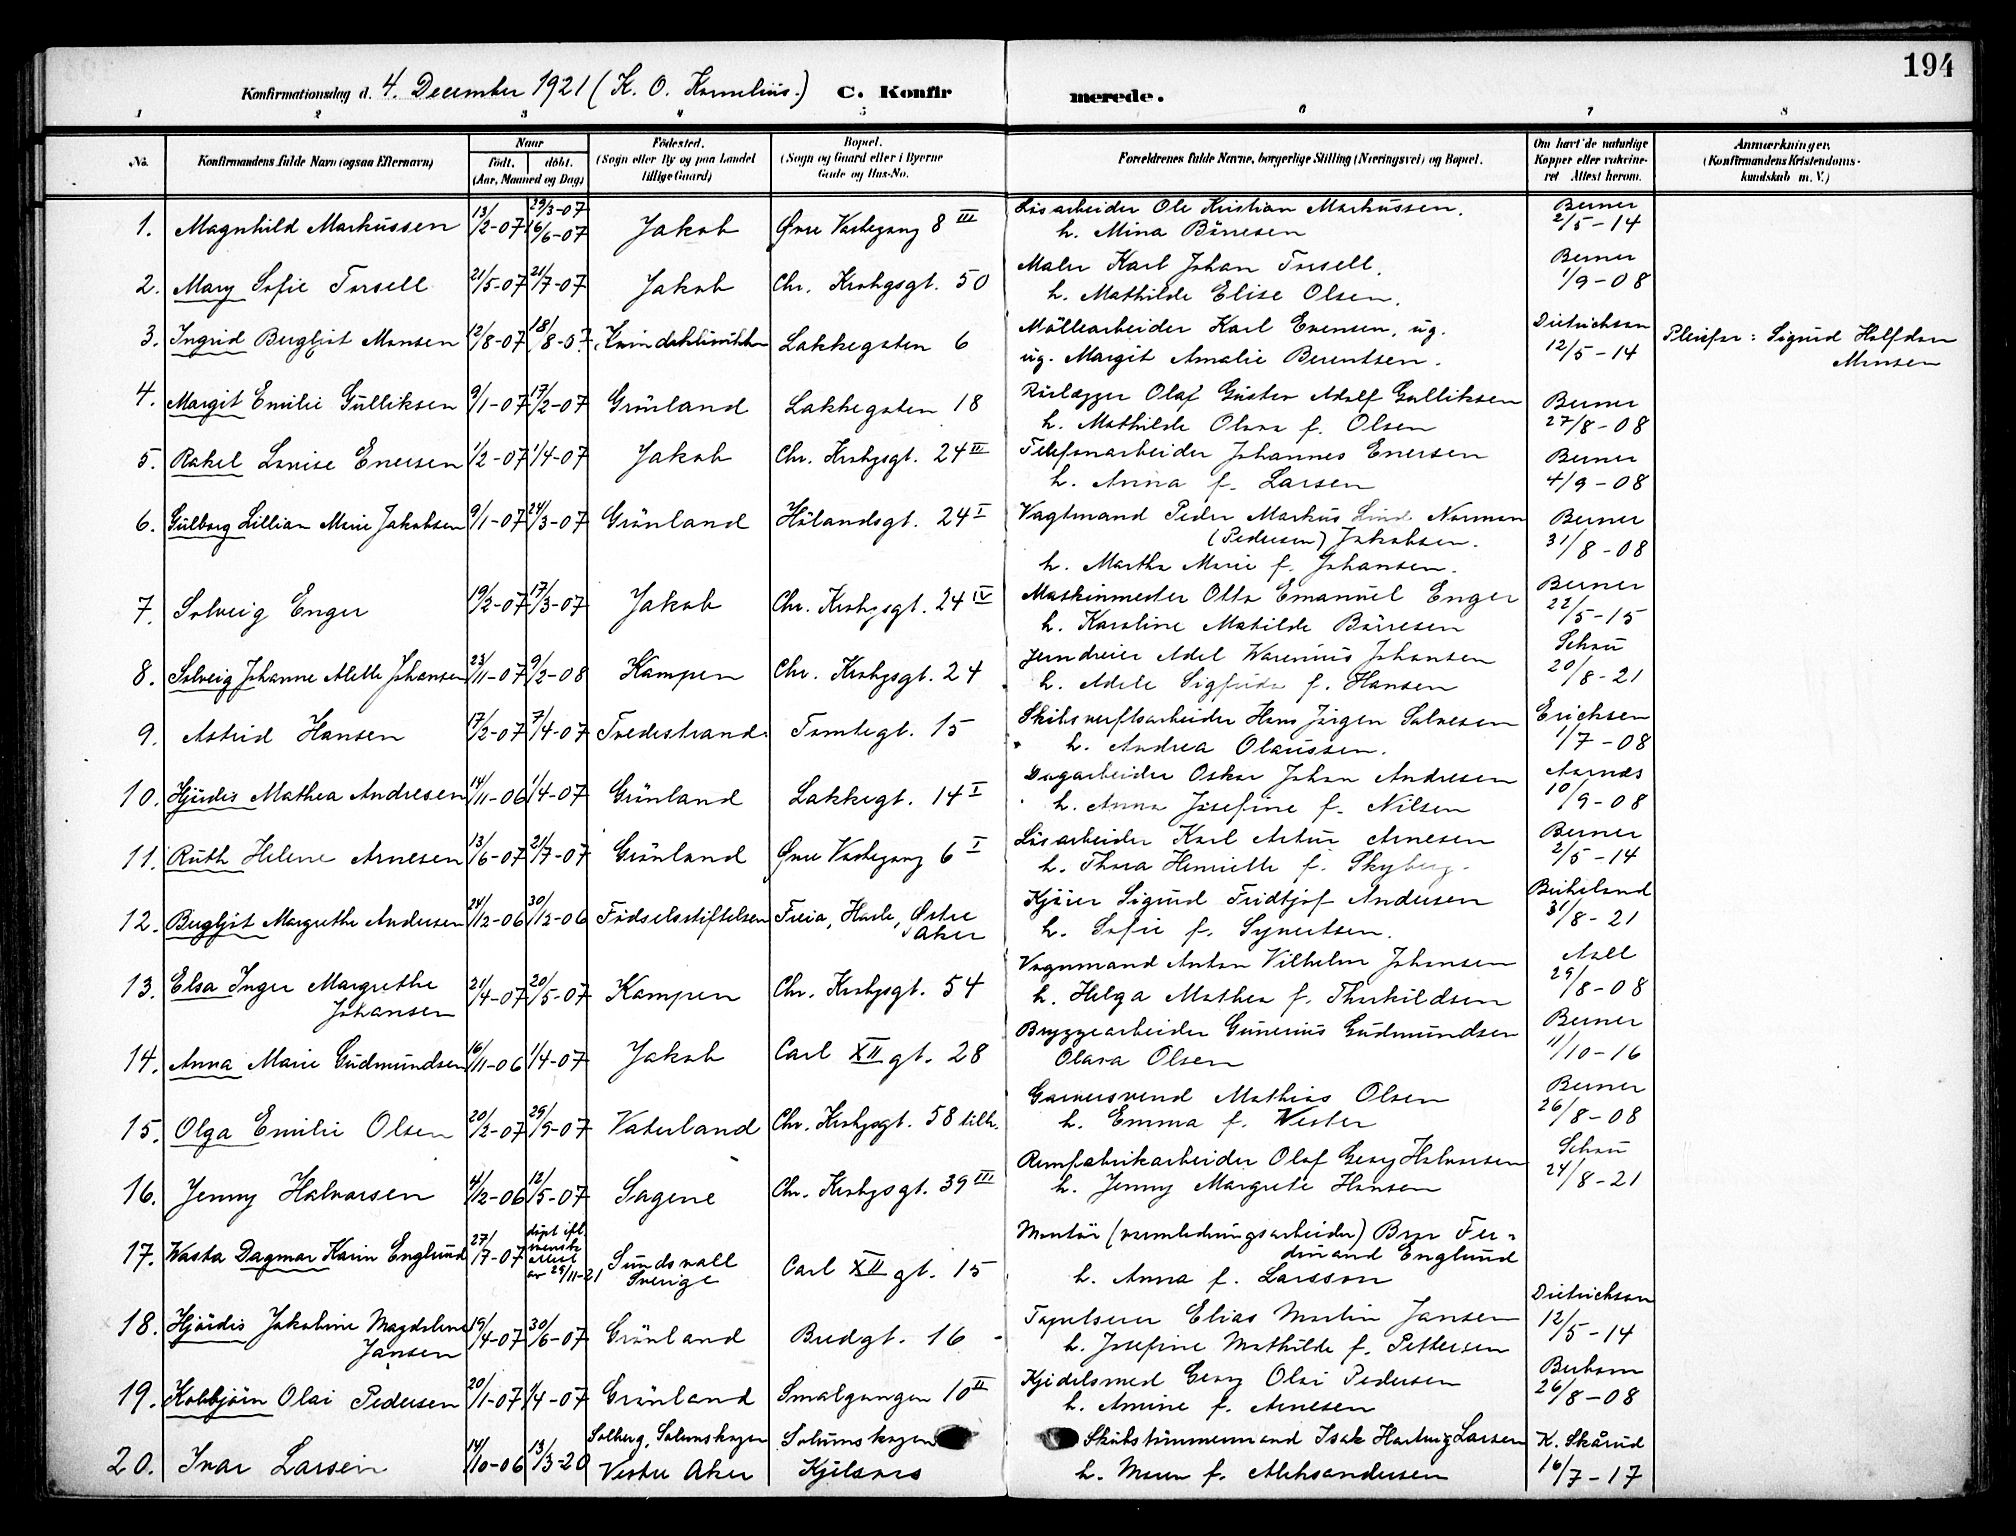 194
Konfirmationsdag d. 4. December 1921 (K. O. Kornelius.) C. Konfirmerede.
1 2 3 4 5 6 7 8
No. Konfirmandens fulde Navn (ogsaa Efternavn) Naar født. døbt. (Aar, Maaned og Dag) Fødested. (Sogn eller By og paa Landet tillige Gaard) Bopæl. (Sogn og Gaard eller i Byerne Gade og Hus-No. Forældrenes fulde Navne, borgerlige Stilling (Næringsvei) og Bopæl. Om havt de naturlige Kopper eller vakcineret Attest herom. Anmærkninger. (Konfirmandens Kristendomskundskab m. V.)
1. Magnhild Markussen 13/2-07 29/3-07 16/6-07 Jakob Øvre Vaskegang 8 III Løsarbeider Ole Kristian Markussen. Berner
h. Mina Börresen 2/5-14
2. Mary Sofie Torsell 21/5-07 21/7-07 Jakob Chr. Krohgsgt. 50 Maler Karl Johan Torsell. Berner
h. Mathilde Elise Olsen. 1/9-08
3. Ingrid Bergljot Monsen 12/8-07 18/8-07 Kvindeklinikken Lakkegaten 6 Möllearbeider Karl Evensen, ug. Dietrichson Pleiefar: Sigurd Halfdan
ug. Margit Amalie Berentsen. 12/5-14 Monsen
4. Margit Emilie Gulliksen 9/1-07 17/2-07 Grönland Lakkegaten 18 Rörlægger Olaf Gustav Adolf Gulliksen Berner
h. Mathilde Olava f. Olsen 27/8-08
5. Rakel Lovise Enersen 1/2-07 1/4-07 Jakob Chr. Krohgsgt. 24 III Telefonarbeider Johannes Enersen Berner
h. Anna f. Larsen 4/9-08
6. Gulborg Lillian Marie Jakobsen 9/1-07 24/3-07 Grönland Hölandsgt. 24 I Vagtmand Peder Markus Lind Norman Berner
(Pedersen) Jakobsen. 31/8-08
h. Martha Marie f. Johansen.
7. Solveig Enger 19/2-07 17/3-07 Jakob Chr. Krohgsgt. 24 IV Maskinmester Otto Emanuel Enger Berner
h. Karoline Matilde Börresen 22/5-15
8. Solveig Johanne Alette Johansen 23/11-07 9/2-08 Kampen Chr. Krohgsgt. 24 Jerndreier Adel Warenius Johansen Schou
h. Adele Sigfrida f. Hansen 20/8-21
9. Astrid Hansen 17/2-07 7/4-07 Tvedestrand Tomtegt. 15 Skibsverftsarbeider Hans Jörgen Salvesen Erichsen
h. Andrea Olaussen. 1/7-08
10. Hjördis Mathea Andresen 14/11-06 1/4-07 Grönland Lakkegt. 14 I Dagarbeider Oskar Johan Andresen Aarnæs
h. Anna Josefine f. Nilsen 10/9-08
11. Ruth Helene Arnesen 13/6-07 21/7-07 Grönland Øvre Vaskegang 6 I Løsarbeider Karl Artur Arnesen Berner
h. Thora Henriette f. Skyberg. 2/5-14
12. Bergljot Margrethe Andersen 24/12-06 30/12-06 Födselsstiftelsen Freia, Hasle, Østre Aker Kjörer Sigurd Fridtjof Andersen
h. Sofie f. Syvertsen. 31/8-21
13. Elsa Inger Margrethe 21/4-07 20/5-07 Kampen Chr. Krohgsgt. 54 Vognmand Anton Vilhelm Johansen Aall
Johansen h. Helga Mathea f. Thorkildsen 29/8-08
14. Anna Marie Gudmundsen 16/11-06 1/4-07 Jakob Carl XII gt. 28 Bryggearbeider Gunerius Gudmundsen Berner
Olava Olsen 11/10-16
15. Olga Emilie Olsen 20/2-07 29/9-07 Vaterland Chr. Krohgsgt. 58 Garversvend Mathias Olsen Berner
h. Emma f. Wester 26/8-08
16. Jenny Halvorsen 4/12-06 12/5-07 Sagene Chr. Krohgsgt. 39 III Remfabrikarbeider Olaf Georg Halvorsen Schou
h. Jenny Margrete Hansen 24/8-21
17. Wasta Dagmar Karin Englund 27/7-07 döpt ifl. svensk attest av 29/11-21 Sundsvall Sverige Carl XII gt. 15 Montör (varmledningsarbeider) Bror Ferdinand Englund
h. Anna f. Larsson
18. Hjördis Jakobine Magdalene 19/4-07 30/6-07 Grönland Bredgt. 16 Tapetserer Elias Martin Jansen Dietrichson
Jansen h. Josefine Mathilde f. Pettersen 12/5-14
19. Kolbjörn Olai Pedersen 20/1-07 1/4-07 Grönland Smalgangen 10 II Kjedelsmed Georg Olai Pedersen
h. Amine f. Arnesen 26/8-08
20. Ivar Larsen 14/10-06 13/3-20 Solberg, Solumskogen Solumskogen Skibstömmermand Isak Hartvig Larsen K. Skårud
Vestre Aker Kjelsaas h. Maren f. Aleksandersen 16/7-17